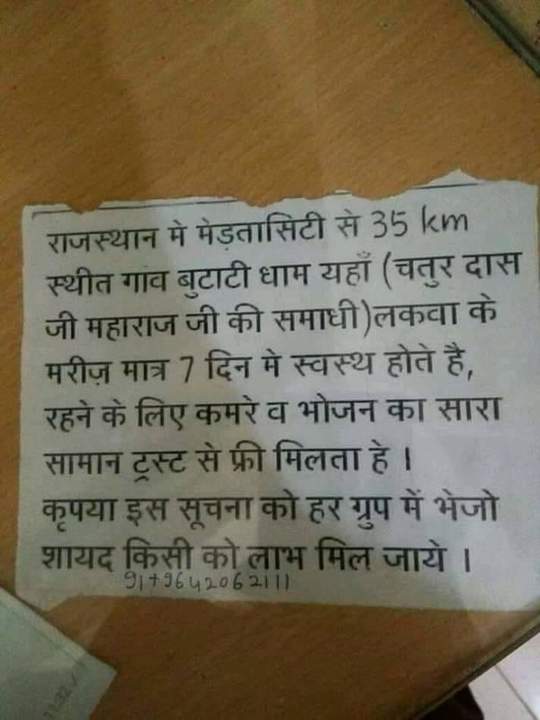 राजस्थान मे मेड़तासिटी से 35 km
स्थीत गाव बुटाटी धाम यहाँ (चतुर दास
जी महाराज जी की समाधी)लकवा के
मरीज़ मात्र 7 दिन मे स्वस्थ होते है,
रहने के लिए कमरे व भोजन का सारा
सामान ट्रस्ट से फ्री मिलता हे ।
कृपया इस सूचना को हर ग्रुप में भेजो
शायद किसी को लाभ मिल जाये ।
91+9642062111